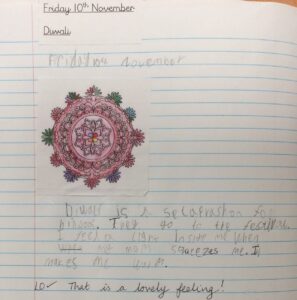 Friday 10th November
Diwali
Friday November
Diwali is a selabration for
hindos. They go to the
I feel a inside me when
my mum sqeezes me. It
makes me
LO ✓ That is a lovely feeling!